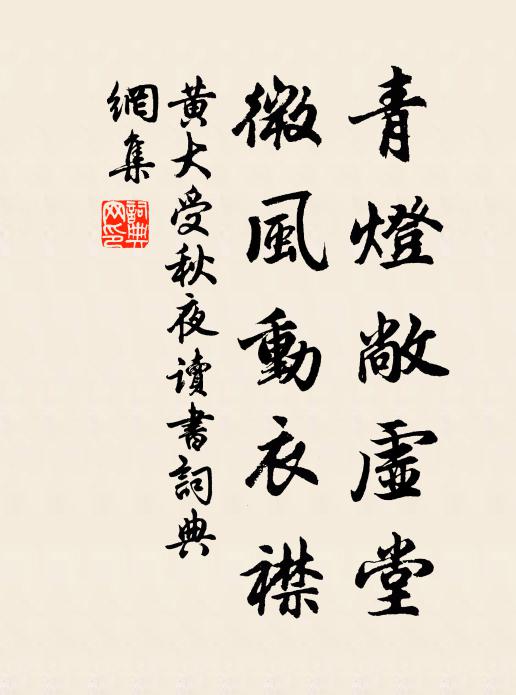 青燈敞虛堂
微風動衣襟
黃大受秋夜讀書詞典
網集
詞典
网印